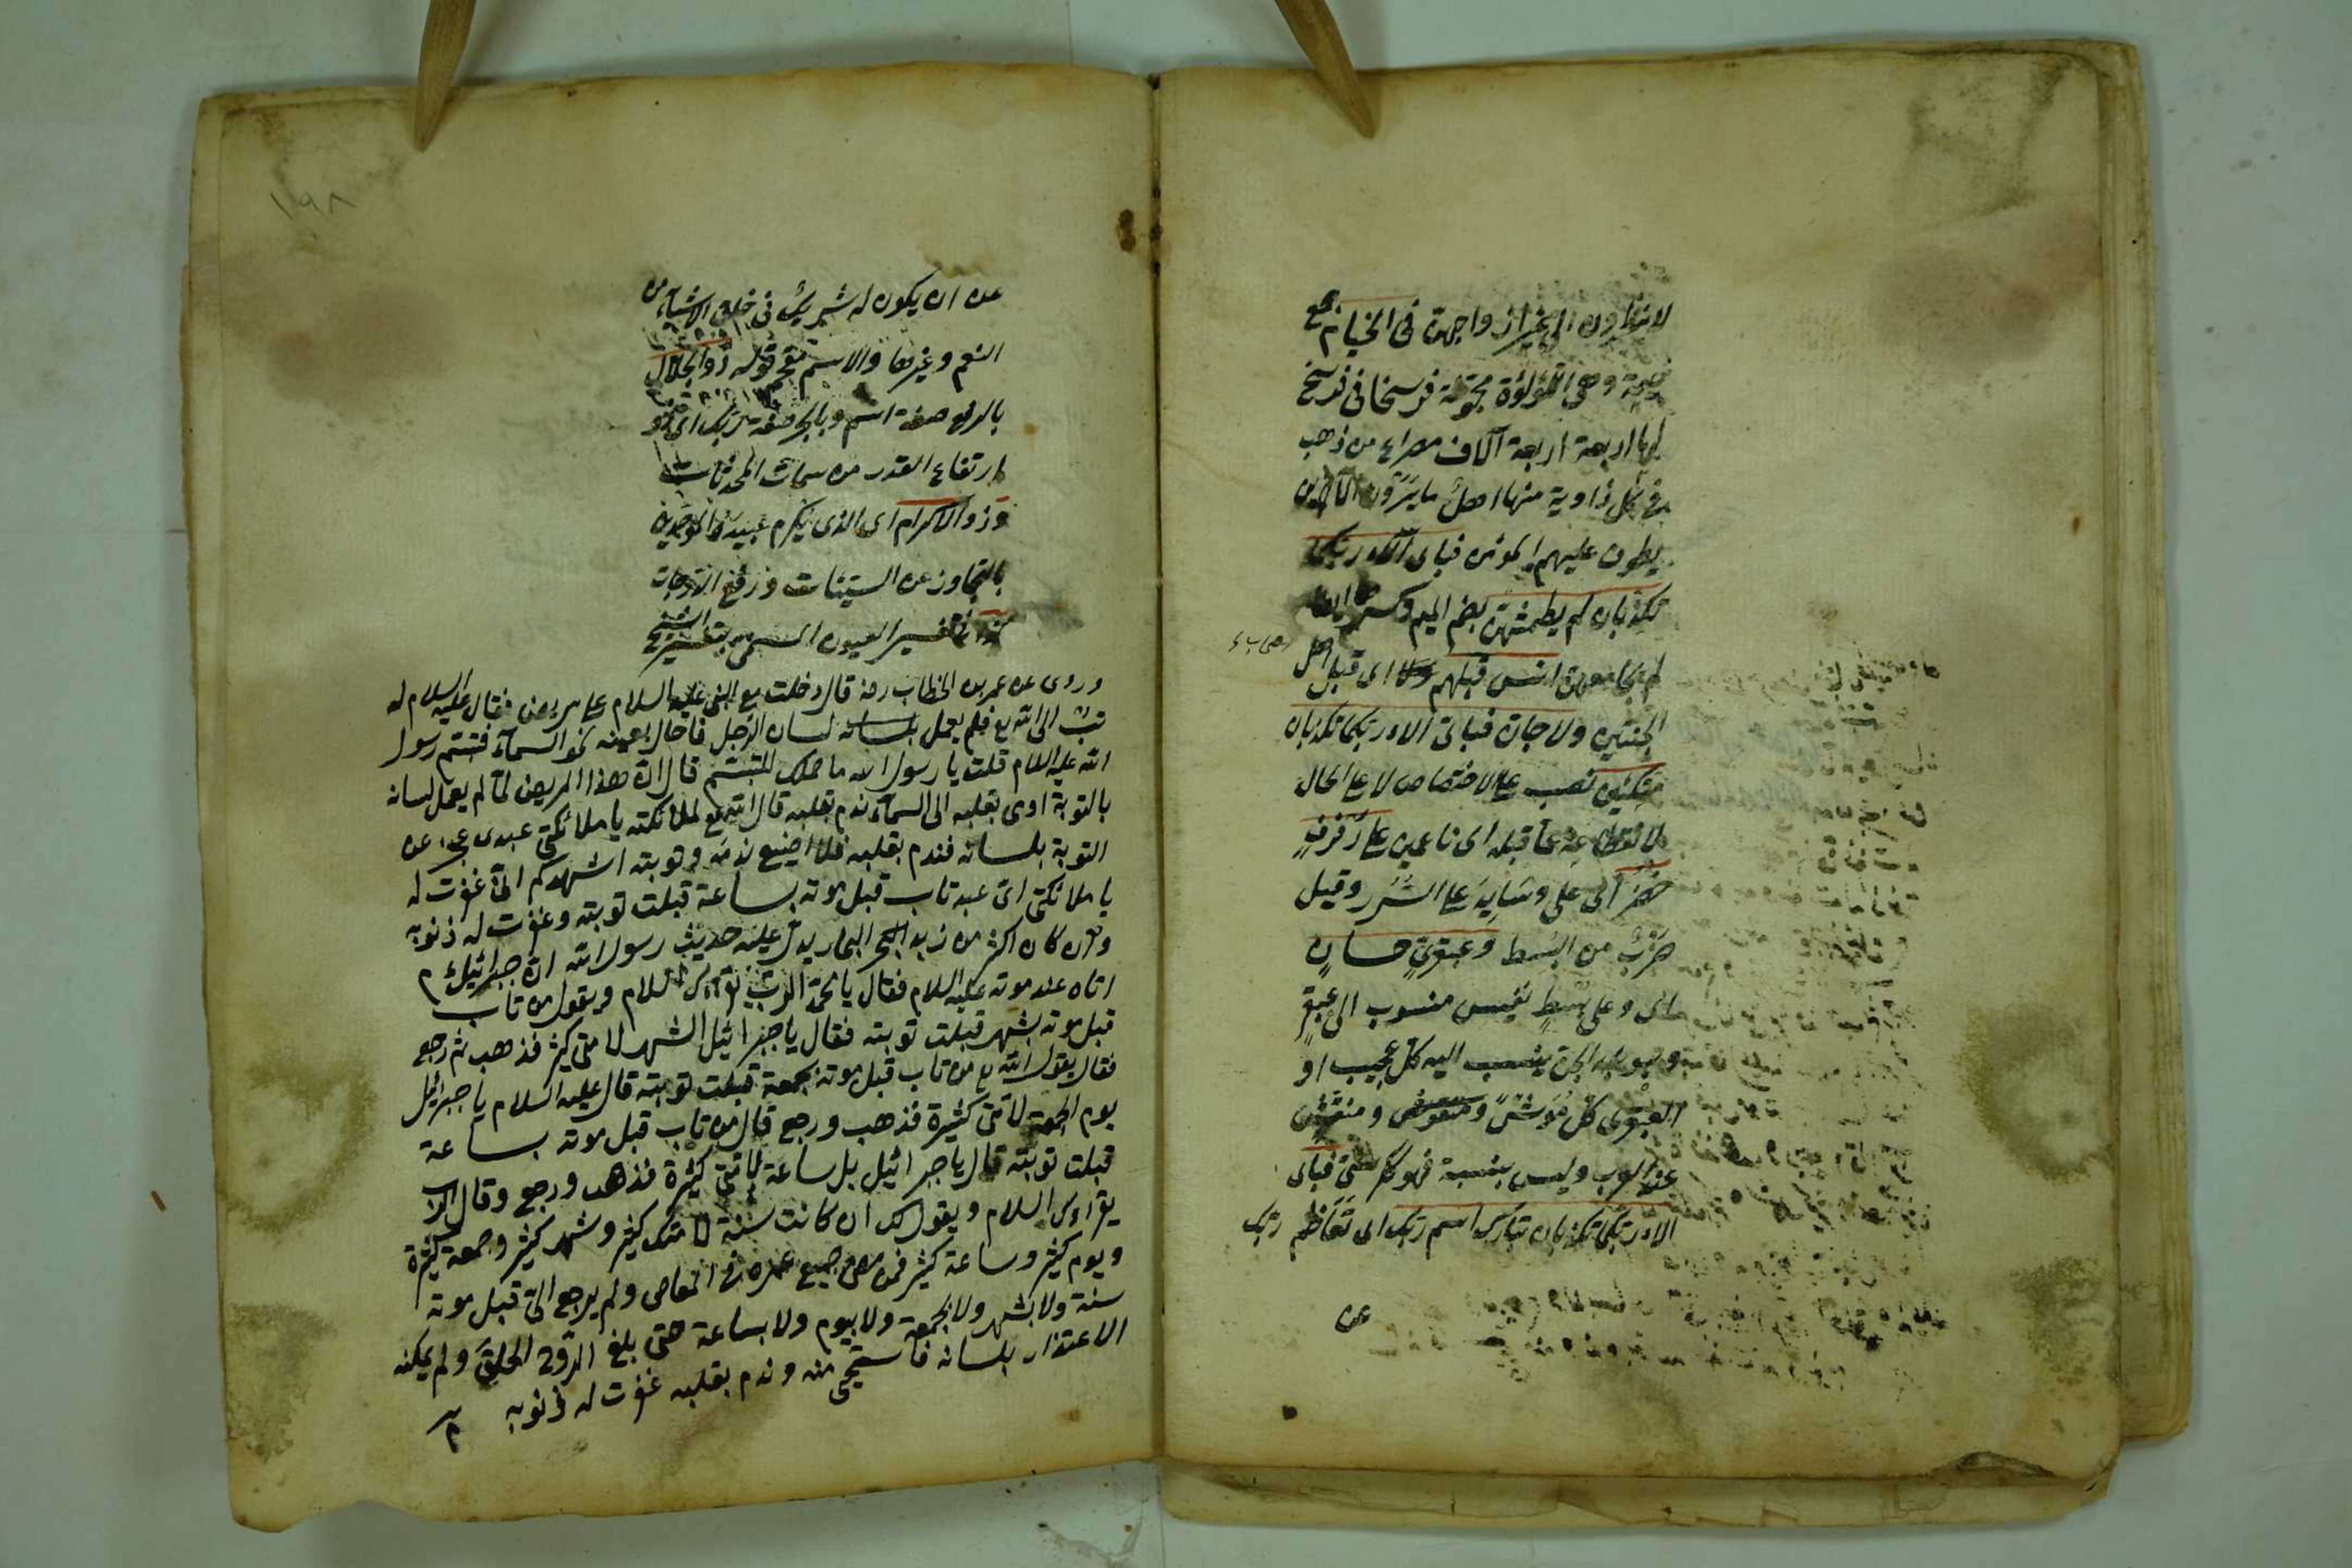 لا ينظرون الى غير ازواجهن فى الخيام جمع
خيمة وهى لؤلؤة مجوفة فرسخا فى فرسخ
لها اربعة اربعة آلاف مصراع من ذهب
فى كل زاوية منها اهل ما يرون الآخرين
يطوف عليهم المؤمن فباى آلاء ربكما
تكذبان لم يطمثهن بضم الميم وكسرها
لم يجامعهن انس قبلهم اى قبل اهل
اصحاب
الجنتين ولا جان فباى آلاء ربكما تكذبان
متكئين نصب على الاختصاص لا على الحال
عما قبله اى ناعمين على رفرف
خضر اى على وسايد على السرر وقيل
ضرب من البسط وعبقرى حسان
اى وعلى بسط نفيس منسوب الى عبقر
وهو بلد الجن ينسب اليه كل عجيب او
العبقرى كل موشى ومنقوش
عند العرب وليس بنسبة فهو ككرسى فباى
الاء ربكما تكذبان تبارك اسم ربك اى تعاظم ربك
عن
١٩٨
عن ان يكون له شريك فى خلق الاشياء من
النعم وغيرها والاسم مقحم قوله ذو الجلال
بالرفع صفة اسم وبالجر صفة ربك اى ذو
ارتفاع القدر من سمات المحدثات
وذو الاكرام اى الذى يكرم عبيده الموحدين
بالتجاوز عن السيئات ورفع الدرجات
كذا فى تفسير العيون المسمى بتفسير الشيخ
وروى عن عمر بن الخطاب رضه قال دخلت مع النبى عليه السلام على مريض فقال عليه السلام له
تب الى الله تع فلم يعمل لسان الرجل فاحال بعينه نحو السماء فتبسم رسول
الله عليه السلام قلت يا رسول الله ما حملك للتبسم قال ان هذا المريض لما لم يعمل لسانه
بالتوبة اومى بقلبه الى السماء ندم بقلبه قال الله تع لملائكته يا ملائكتى عبدى عجز عن
التوبة بلسانه فندم بقلبه فلا اضيع ندمه وتوبته اشهدكم انى غفرت له
يا ملائكتى اى عبد تاب قبل موته بساعة قبلت توبته وغفرت له ذنوبه
وان كان اكثر من زبد البحر البحار يدل عليه حديث رسول الله ان جبرائيل م
اتاه عند موته عليه السلام فقال يا محمد الرب يقرأك السلام ويقول من تاب
قبل موته بشهر قبلت توبته فقال يا جبرائيل الشهر لامتى كثير فذهب ثم رجع
فقال يقول الله تع من تاب قبل موته بجمعة قبلت توبته قال عليه السلام يا جبرائيل
يوم الجمعة لامتى كثيرة فذهب ورجع قال من تاب قبل موته بساعة
قبلت توبته قال يا جبرائيل بل ساعة لامتى كثيرة فذهب ورجع وقال الرب
يقرأك السلام ويقول لك ان كانت سنة لامتك كثير وشهر كثير وجمعة كثيرة
ويوم كثير وساعة كثير فمن مضى جميع عمره فى المعاصى ولم يرجع الى قبل موته
سنة ولا بشهر ولا بجمعة ولا بيوم ولا بساعة حتى بلغ الروح الحلق ولم يمكنه
الاعتذار بلسانه فاستحيى منه وندم بقلبه غفرت له ذنوبه